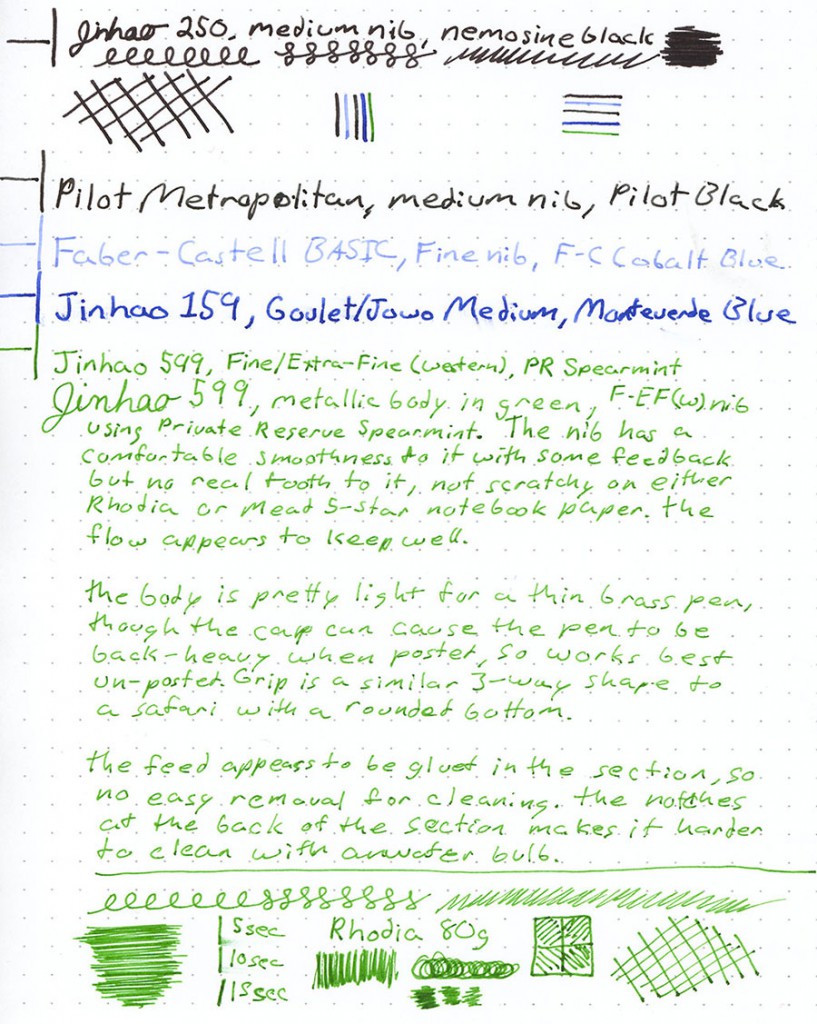 Jinhao 250, medium nib, nemosine black
Pilot Metropolitan, medium nib, Pilot Black
Faber-Castell BASIC, Fine nib, F-C Cobalt Blue
Jinhao 159, Goulet/Jowo Medium, Monteverde Blue
Jinhao 599, Fine/Extra-Fine (western), PR Spearmint
Jinhao 599, metallic body in green, F-EF(w) nib
using Private Reserve Spearmint. The nib has a
comfortable smoothness to it with some feedback
but no real tooth to it, not scratchy on either
Rhodia or Mead 5-star notebook paper. the
flow appears to keep well.
the body is pretty light for a thin brass pen,
though the cap can cause the pen to be
back-heavy when posted, so works best
un-posted. Grip is a similar 3-way shape to
a safari with a rounded bottom.
the feed appears to be glued in the section, so
no easy removal for cleaning. the notches
at the back of the section makes it harder
to clean with a water bulb.
5sec Rhodia 80g
10sec
15sec